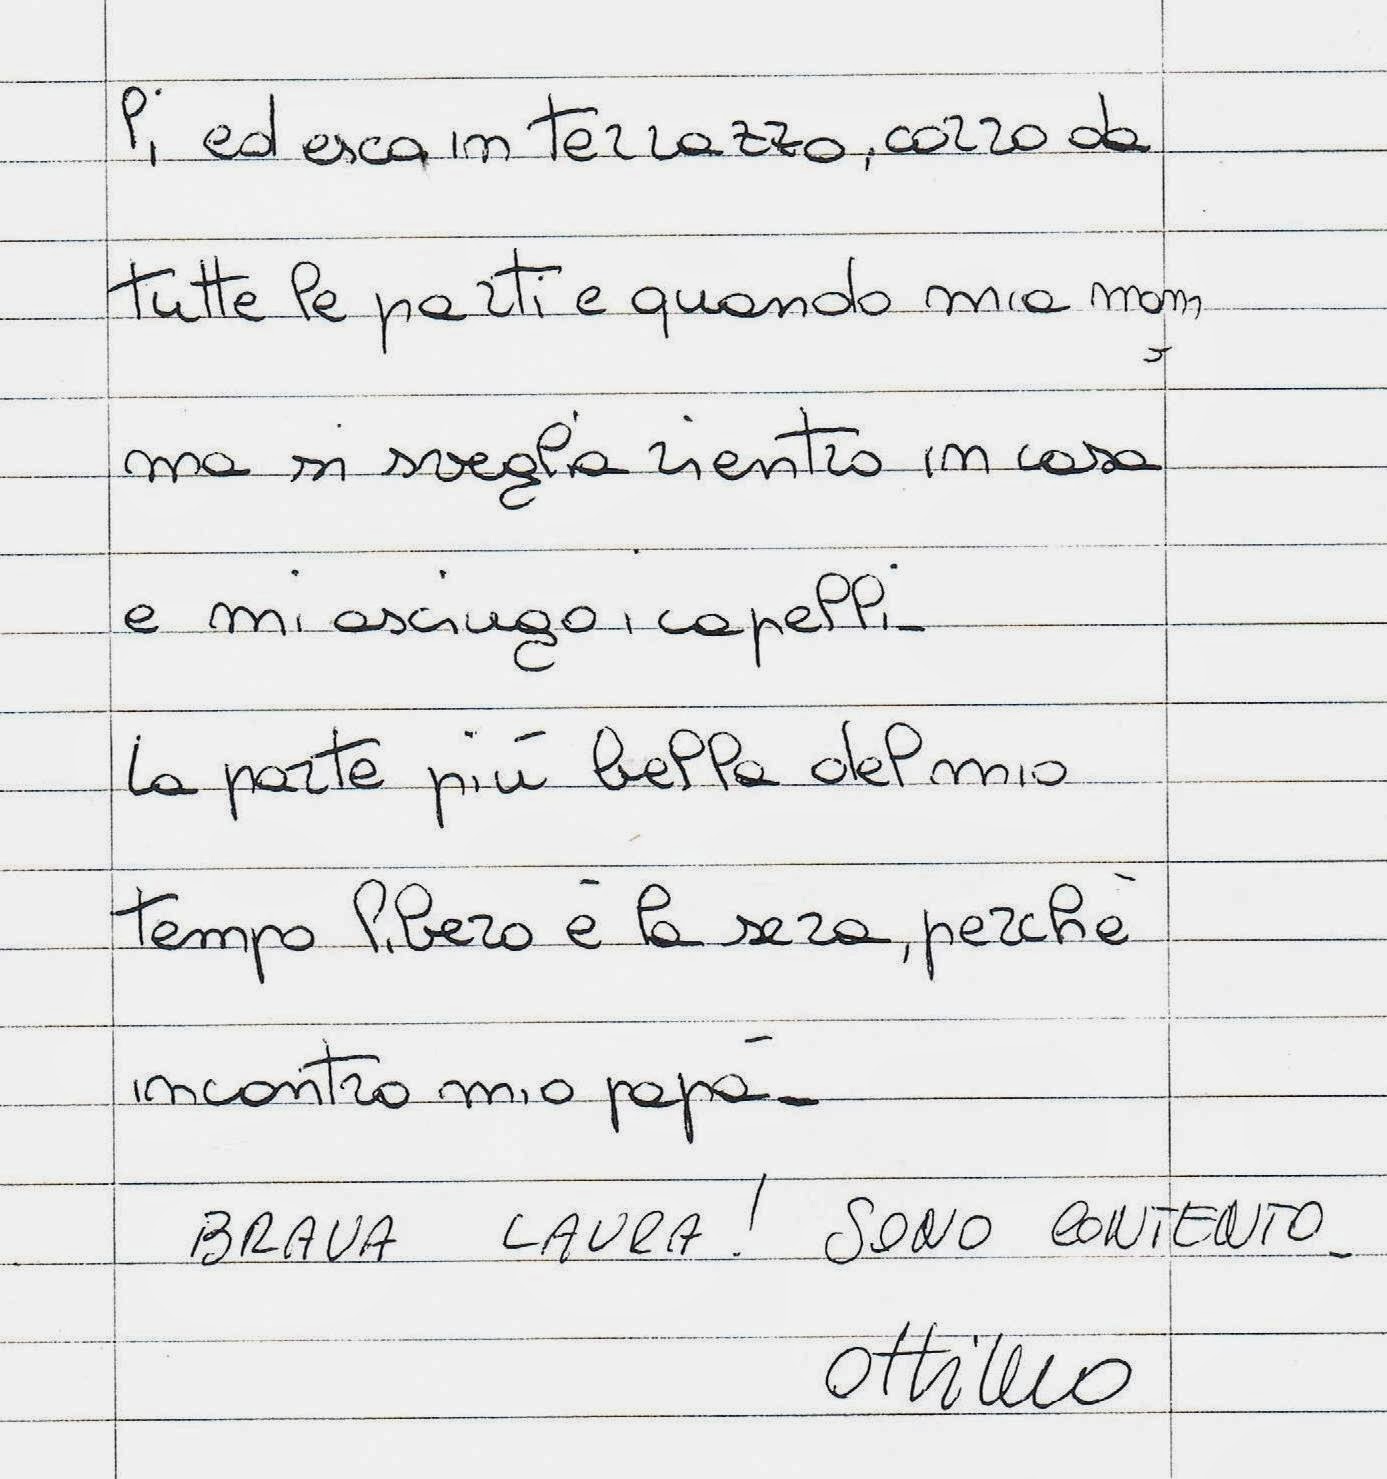 li ed esca in terrazzo, corro da
tutte le parti e quando mia mam
ma si sveglia rientro in casa
e mi asciugo i capelli_
La parte più bella del mio
tempo libero è la sera, perchè
incontro mio papà_
BRAVA LAURA! SONO CONTENTO_
ottimo